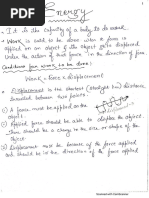 Energy
- It is the capacity of a body to do work.
- Work is said to be done when a force is
applied on an object & the object gets displaced
under the action of that force in the direction of force.
Work = force × displacement
Conditions for work to be done:
⇒ Displacement is the shortest (straight line) distance
travelled between two points.
① A force must be applied on the
object.
② Force applied should be able to displace the object
There should be a change in the size or shape of the
object
③ Displacement must be because of the force applied
and it should be in the direction of the force applied
Scanned with CamScanner